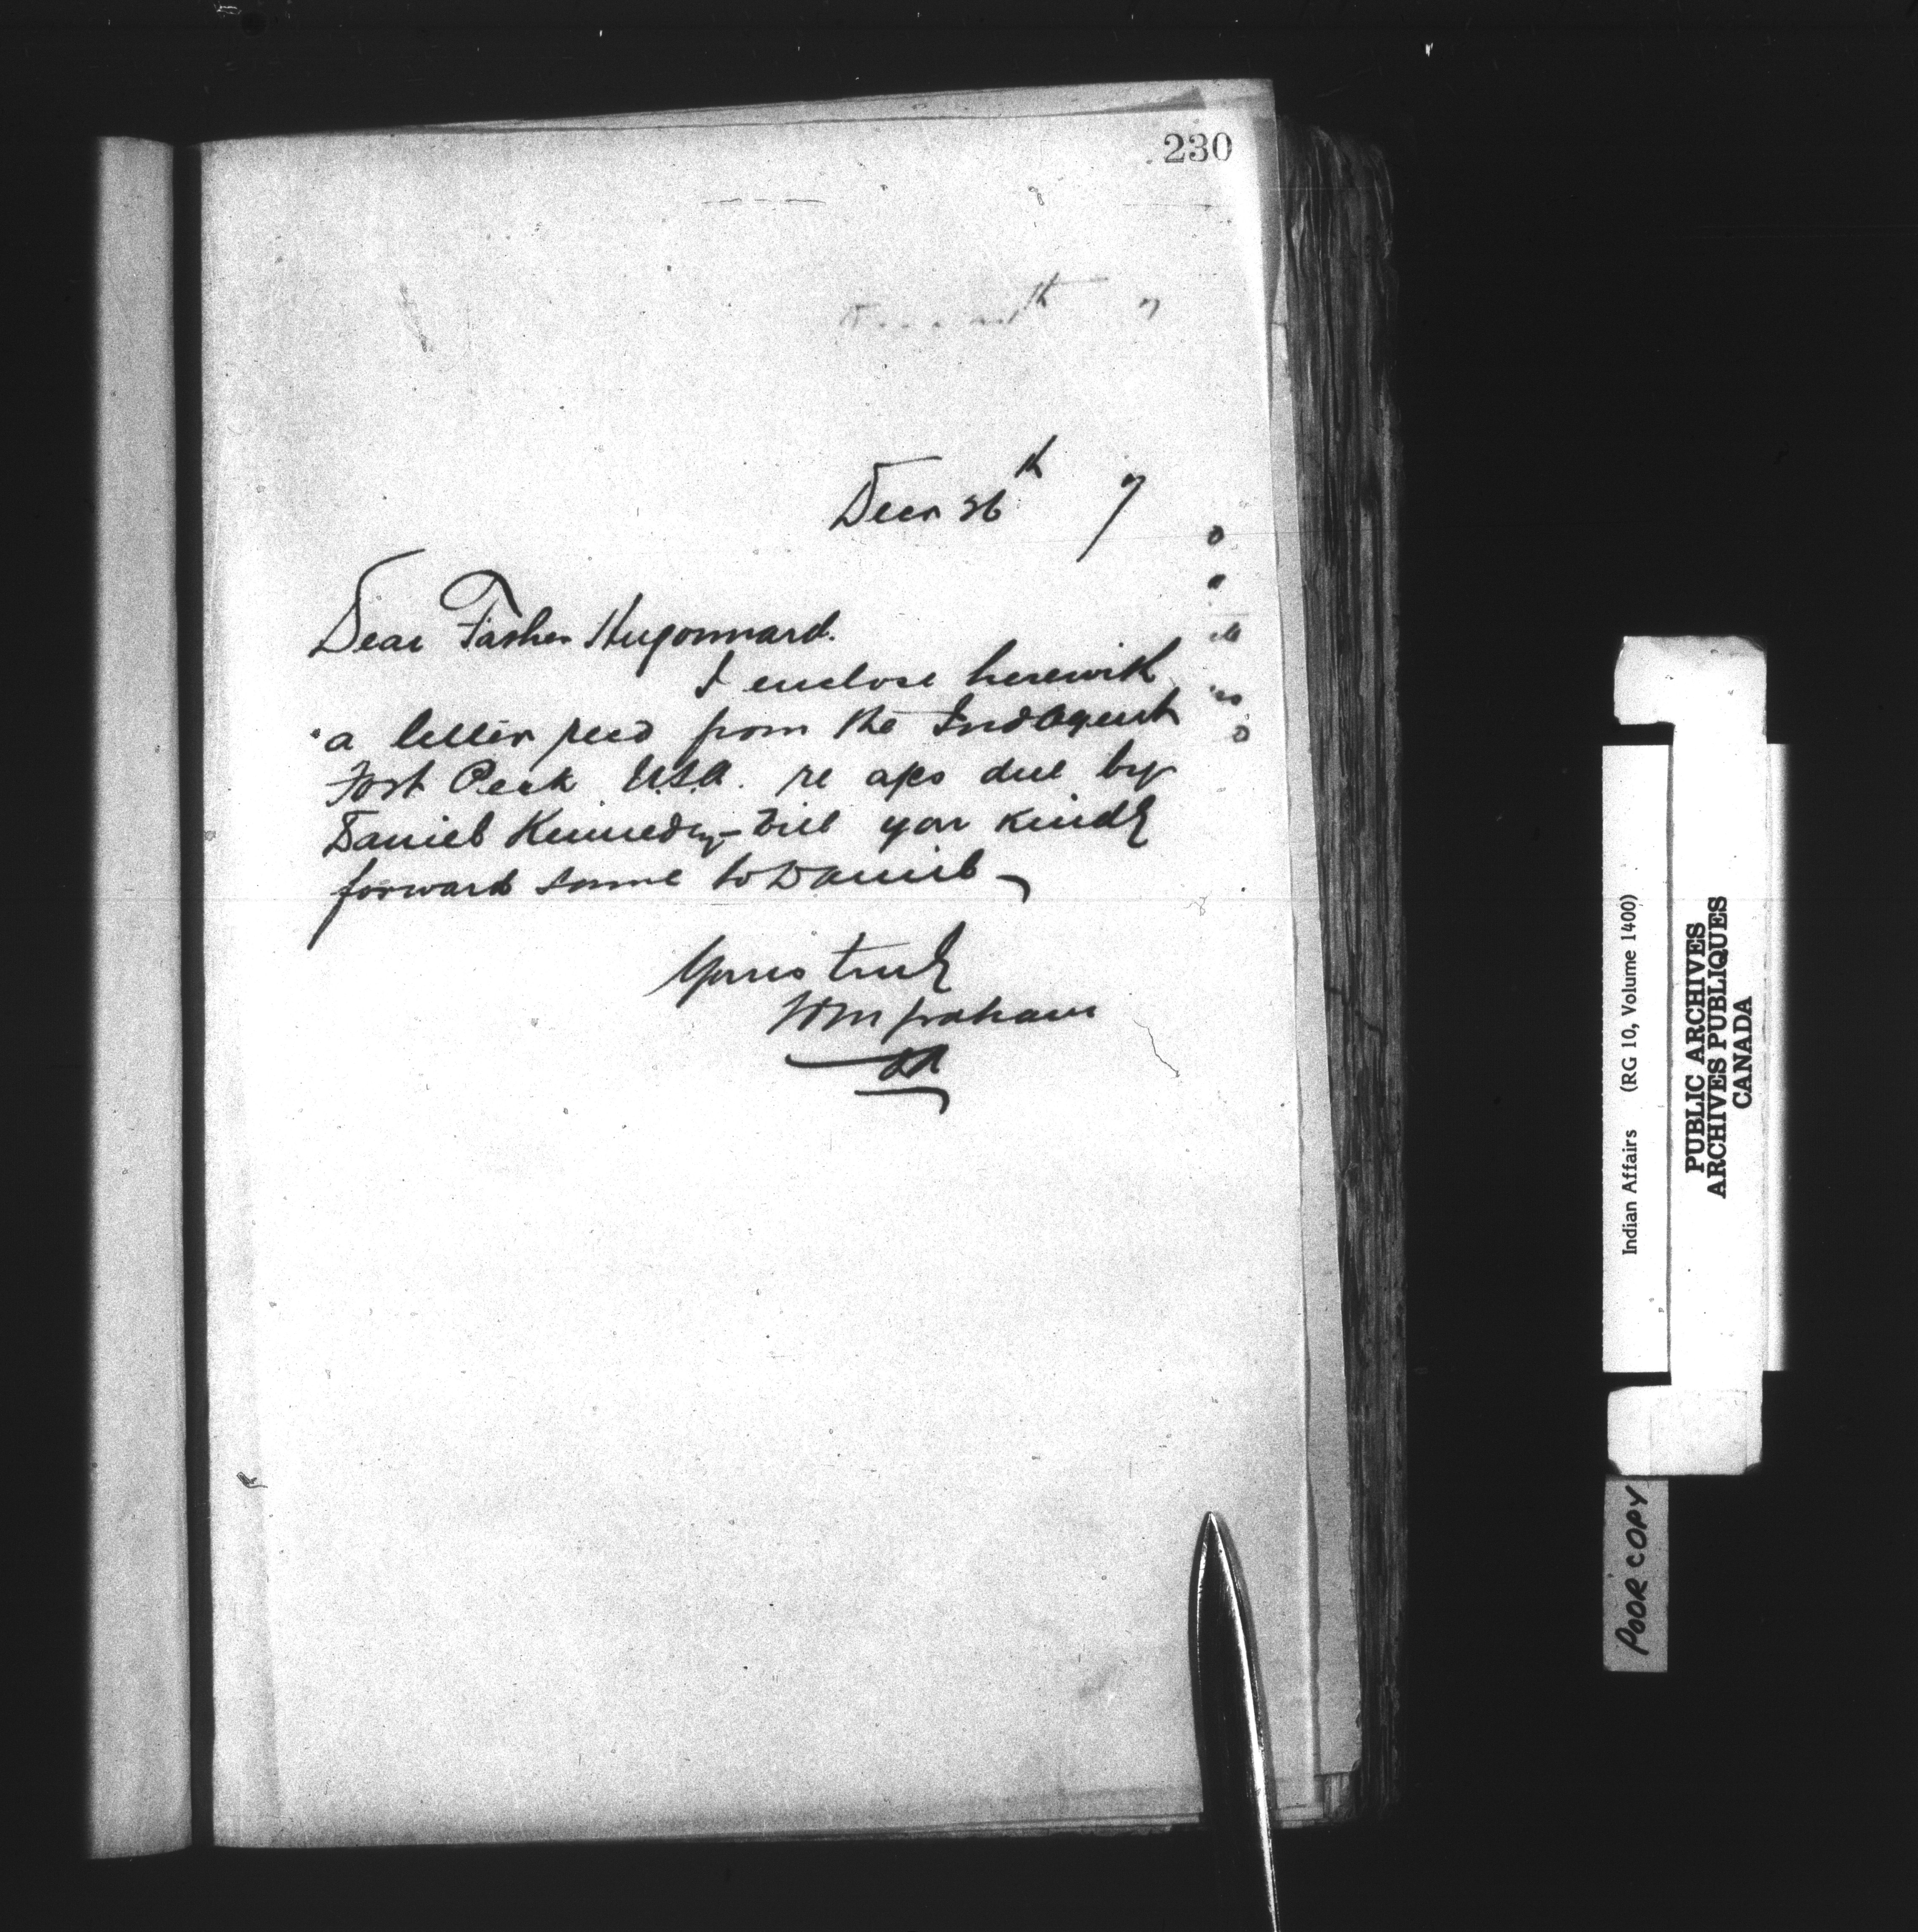 230
Decr 26th 7
Dear Father Hugonnard.
I enclose herewith
a letter recd from the Ind Agent
Fort Peck U.S.A. re a/cs due by
Daniel Kennedy - Will you kindly
forward same to Daniel -
Yours truly
WM Graham
IA
Indian Affairs (RG 10, Volume 1400)
PUBLIC ARCHIVES
ARCHIVES PUBLIQUES
CANADA
POOR COPY